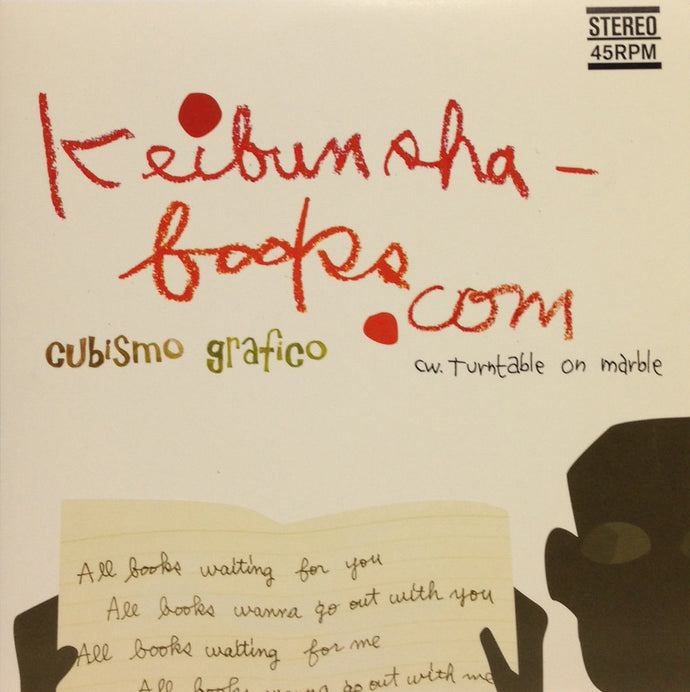 STEREO
45RPM
Keibunsha-
books
.com
cubismo grafico
cw. turntable on marble
All books waiting for you
All books wanna go out with you
All books waiting for me
All books wanna go out with me